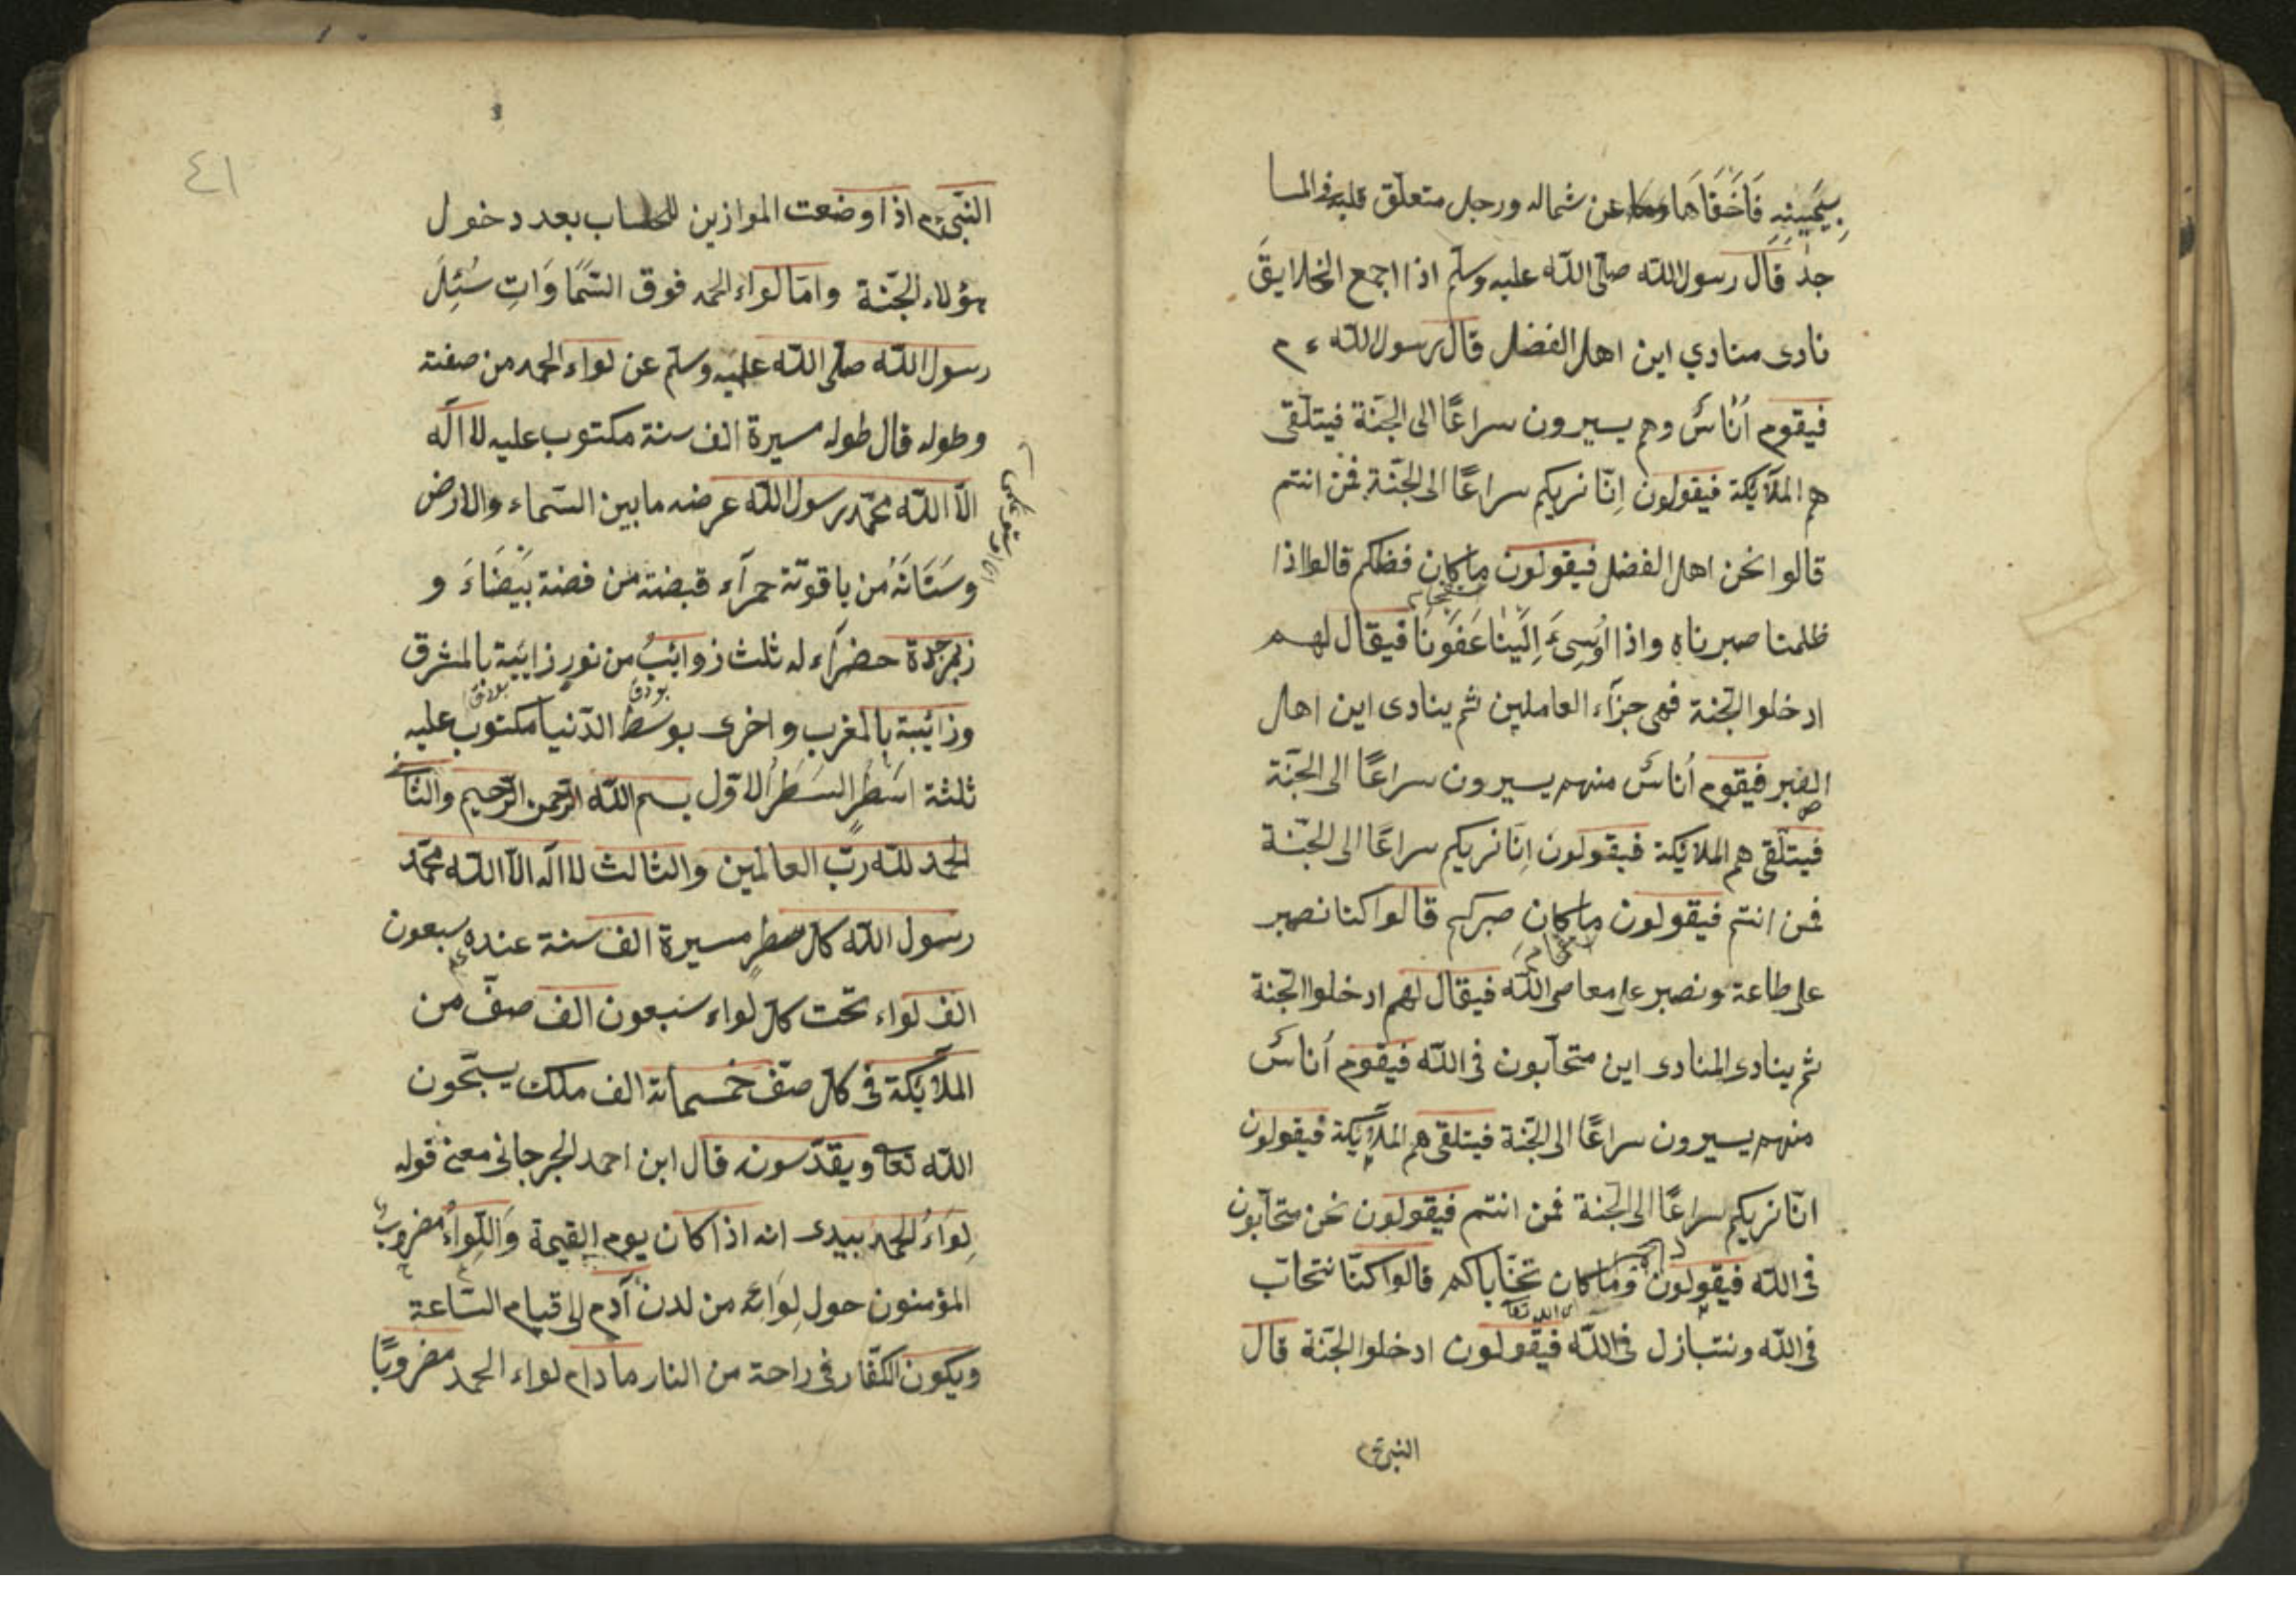 بيمينه فاخفاها عن شماله ورجل متعلق قلبه في المسا
جد قال رسول الله صلى الله عليه وسلم اذا اجمع الخلايق
نادى منادي اين اهل الفضل قال رسول الله ع م
فيقوم اُناسٌ وهم يسيرون سراعًا الى الجنّة فيتلقى
هم الملآئكة فيقولون اِنّا نريكم سراعًا الى الجنّة فمن انتم
قالوا نحن اهل الفضل فيقولون ما كان فضلكم قالوا اذا
ظلمنا صبرناه واذا اُوسِىءَ اِلَيْنا عَفَوْنَا فيقال لهم
ادخلوا الجنة فهى جزآء العاملين ثم ينادى اين اهل
الصبر فيقوم اُناسٌ منهم يسيرون سراعًا الى الجنّة
فيتلقى هم الملائكة فيقولون اِنّا نريكم سراعًا الى الجنّة
فمن انتم فيقولون ما كان صبركم قالوا كنا نصبر
على طاعة ونصبر على معاصى الله فيقال لهم ادخلوا الجنة
ثم ينادى المنادى اين متحآبون فى الله فيقوم اُناسٌ
منهم يسيرون سراعًا الى الجنّة فيتلقى هم الملآئكة فيقولون
انّا نريكم سراعًا الى الجنة فمن انتم فيقولون نحن متحآبون
فى الله فيقولون وما كان قالوا كنّا نتحابّ
فى الله ونتبازل فى الله فيقولون ادخلوا الجنّة قال
النبى ع م
٤١
النّبى ع م اذا وضعت الموازين للحساب بعد دخول
هؤلاء الجنّة وامّا لواء الحمد فوق السَّمَاوَاتِ سُئِلَ
رسول الله صلّى الله عليه وسلّم عن لواء الحمد من صفته
وطوله قال طوله مسيرة الف سنة مكتوب عليه لا اله
الّا الله محمّد رسول الله عرضه ما بين السّماء والارض
من ياقوتة حمرآء قبضته من فضة بَيْضَاءَ و
زبرجدة حضرآء له ثلث زوائبُ من نورٍ زايبة بالمشرق
وزائبة بالمغرب واخرى بوسط الدّنيا مكتوب عليه
ثلثة اسطرٍ السَطرُ الاوّل بسم الله الرّحمن الرّحيم والثانى
الحمد لله ربّ العالمين والثالث لا اله الّا الله محمّد
رسول الله كل سطرٍ مسيرة الف سنة عنده سبعون
الف لواء تحت كل لواء سَبعون الف صفّ من
الملآئكة فى كل صفّ خمسمائة الف ملك يسبّحون
الله تعا ويقدّسونه قال ابن احمد الجرجانى معنى قوله
لِوَاءُ الحمد بيدى انه اذا كان يوم القيمة وَاللِّواءُ مضروبٌ
المؤمنون حول لِوَائه من لدن آدم الى قيام السّاعة
ويكون الكفّار فى راحة من النار ما دام لواء الحمد مضروبًا